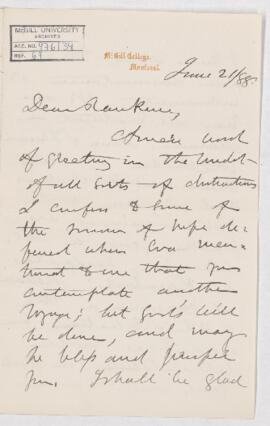 McGILL UNIVERSITY
ARCHIVES
ACC. NO. 976/39
REF. 69
McGill College,
Montreal.
June 21/88
Dear Rankine,
A mere word
of greeting in the midst
of all sorts of distractions
I confess to some of
the of hope de-
ferred when Eva men-
tioned to me that you
contemplate another
voyage; but God's will
be done, and may
he bless and prosper
you. I shall be glad